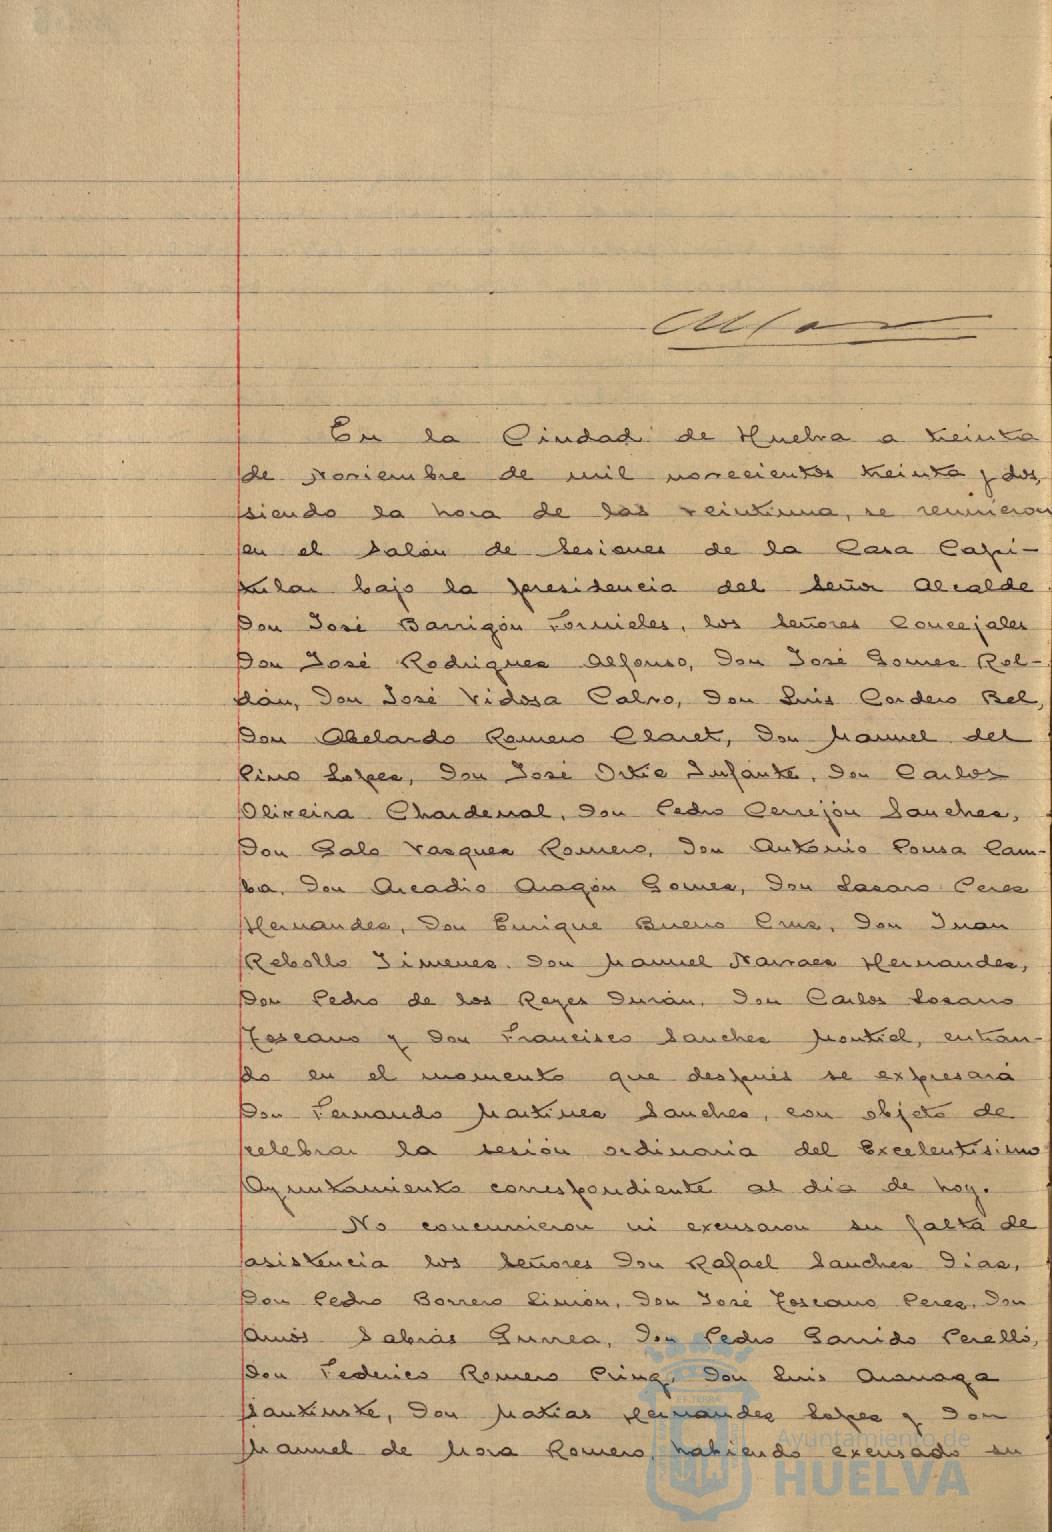 En la Ciudad de Huelva a treinta
de Noviembre de mil novecientos treinta y dos,
siendo la hora de las veintiuna, se reunieron
en el Salón de Sesiones de la Casa Capi-
tular bajo la presidencia del Señor Alcalde
Don José Barrigón Fornieles, los Señores Concejales
Don José Rodriguez Alfonso, Don José Gomez Rol-
dán, Don José Vidosa Calvo, Don Luis Cordero Bel,
Don Abelardo Romero Claret, Don Manuel del
Pino Lopez, Don José Ortiz Infante, Don Carlos
Oliveira Chardenal, Don Pedro Cerrejón Sanchez,
Don Galo Vazquez Romero, Don Antonio Pousa Cam-
ba, Don Arcadio Aragón Gomez, Don Lazaro Perez
Hernandez, Don Enrique Bueno Cruz, Don Juan
Rebollo Jimenez, Don Manuel Narvaez Hernandez,
Don Pedro de los Reyes Durán, Don Carlos Lozano
Toscano y Don Francisco Sanchez Montiel, entran-
do en el momento que después se expresará
Don Fernando Martinez Sanchez, con objeto de
celebrar la sesión ordinaria del Excelentísimo
Ayuntamiento correspondiente al dia de hoy.
No concurrieron ni excusaron su falta de
asistencia los Señores Don Rafael Sanchez Diaz,
Don Pedro Borrero Limón, Don José Toscano Perez, Don
Amós Sabrás Gurrea, Don Pedro Garrido Perelló,
Don Federico Romero Don Luis
Don Matias Hernandez Lopez y Don
Manuel de Mora Romero, habiendo excusado su
Ayuntamiento de
HUELVA